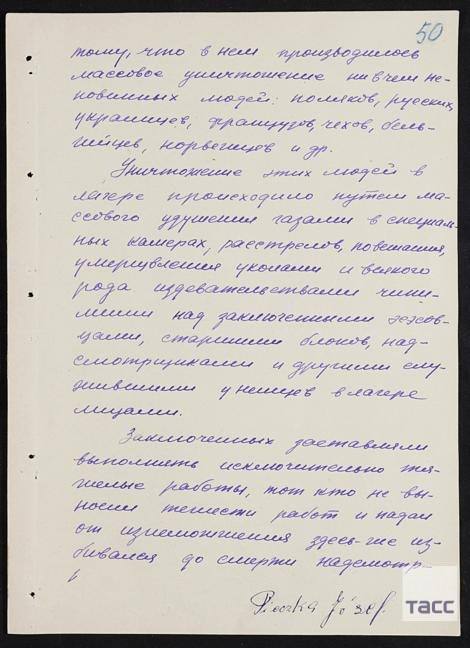 50
тому, что в нем производилось
массовое уничтожение ни в чем не-
повинных людей: поляков, русских,
украинцев, французов, чехов, бель-
гийцев, норвегинцев и др.
Уничтожение этих людей в
лагере происходило путем ма-
ссового удушения газами в специаль-
ных камерах, расстрелов, повешания,
умерщвления уколами и всякого
рода издевательствами чини-
мыми над заключенными эсэсов-
цами, старшими блоков, над-
смотрщиками и другими слу-
жившими у немцев в лагере
лицами.
Заключенных заставляли
выполнять исключительно тя-
желые работы, тот кто не вы-
носил тежести работ и падал
от изнеможжения здесь-же из-
бивался до смерти надсмотр-
Józef
ТАСС